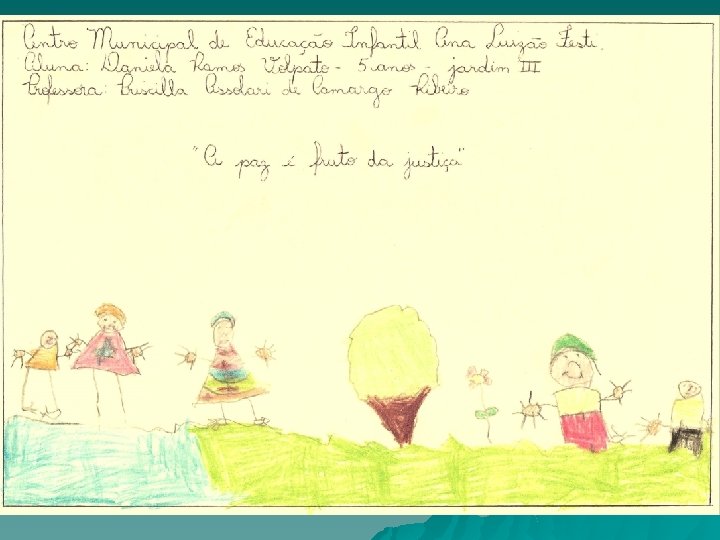 Centro Municipal de Educação Infantil Ana Luizão Festi.
Aluna: Daniela Ramos Volpato - 5 anos - jardim III
Professora: Priscilla Assolari de Camargo Ribeiro
"A paz é fruto da justiça"